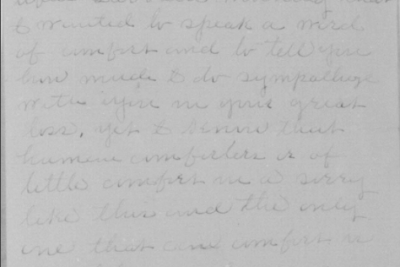 I wanted to speak a word
of comfort and to tell you
how much I do sympathize
with you in your great
loss, yet I know that
human comforters is of
little comfort in a sorry
like this and the only
one that can comfort is